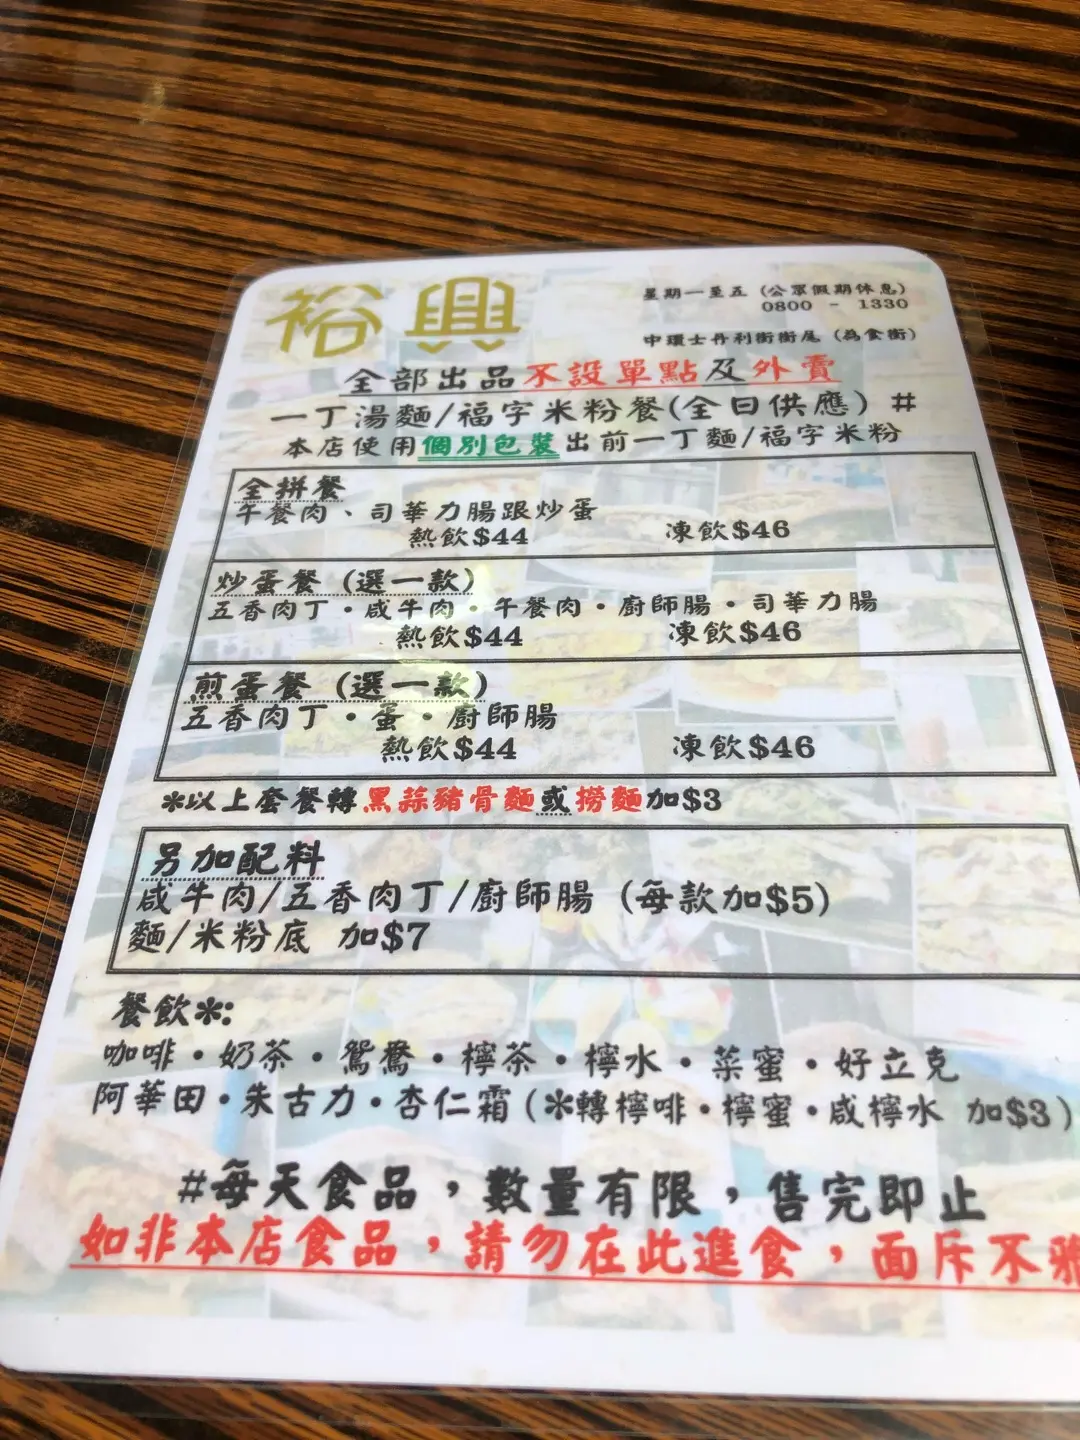 裕興
星期一至五 (公眾假期休息)
0800 - 1330
中環士丹利街街尾 (為食街)
全部出品不設單點及外賣
一丁湯麵/福字米粉餐(全日供應) #
本店使用個別包裝出前一丁麵/福字米粉
全拼餐
午餐肉、司華力腸跟炒蛋
熱飲$44 凍飲$46
炒蛋餐 (選一款)
五香肉丁·咸牛肉·午餐肉·廚師腸·司華力腸
熱飲$44 凍飲$46
煎蛋餐 (選一款)
五香肉丁·蛋·廚師腸
熱飲$44 凍飲$46
*以上套餐轉黑蒜豬骨麵或撈麵加$3
另加配料
咸牛肉/五香肉丁/廚師腸 (每款加$5)
麵/米粉底 加$7
餐飲*:
咖啡·奶茶·鴛鴦·檸茶·檸水·菜蜜·好立克
阿華田·朱古力·杏仁霜(*轉檸啡·檸蜜·咸檸水 加$3)
#每天食品,數量有限,售完即止
如非本店食品,請勿在此進食,面斥不雅